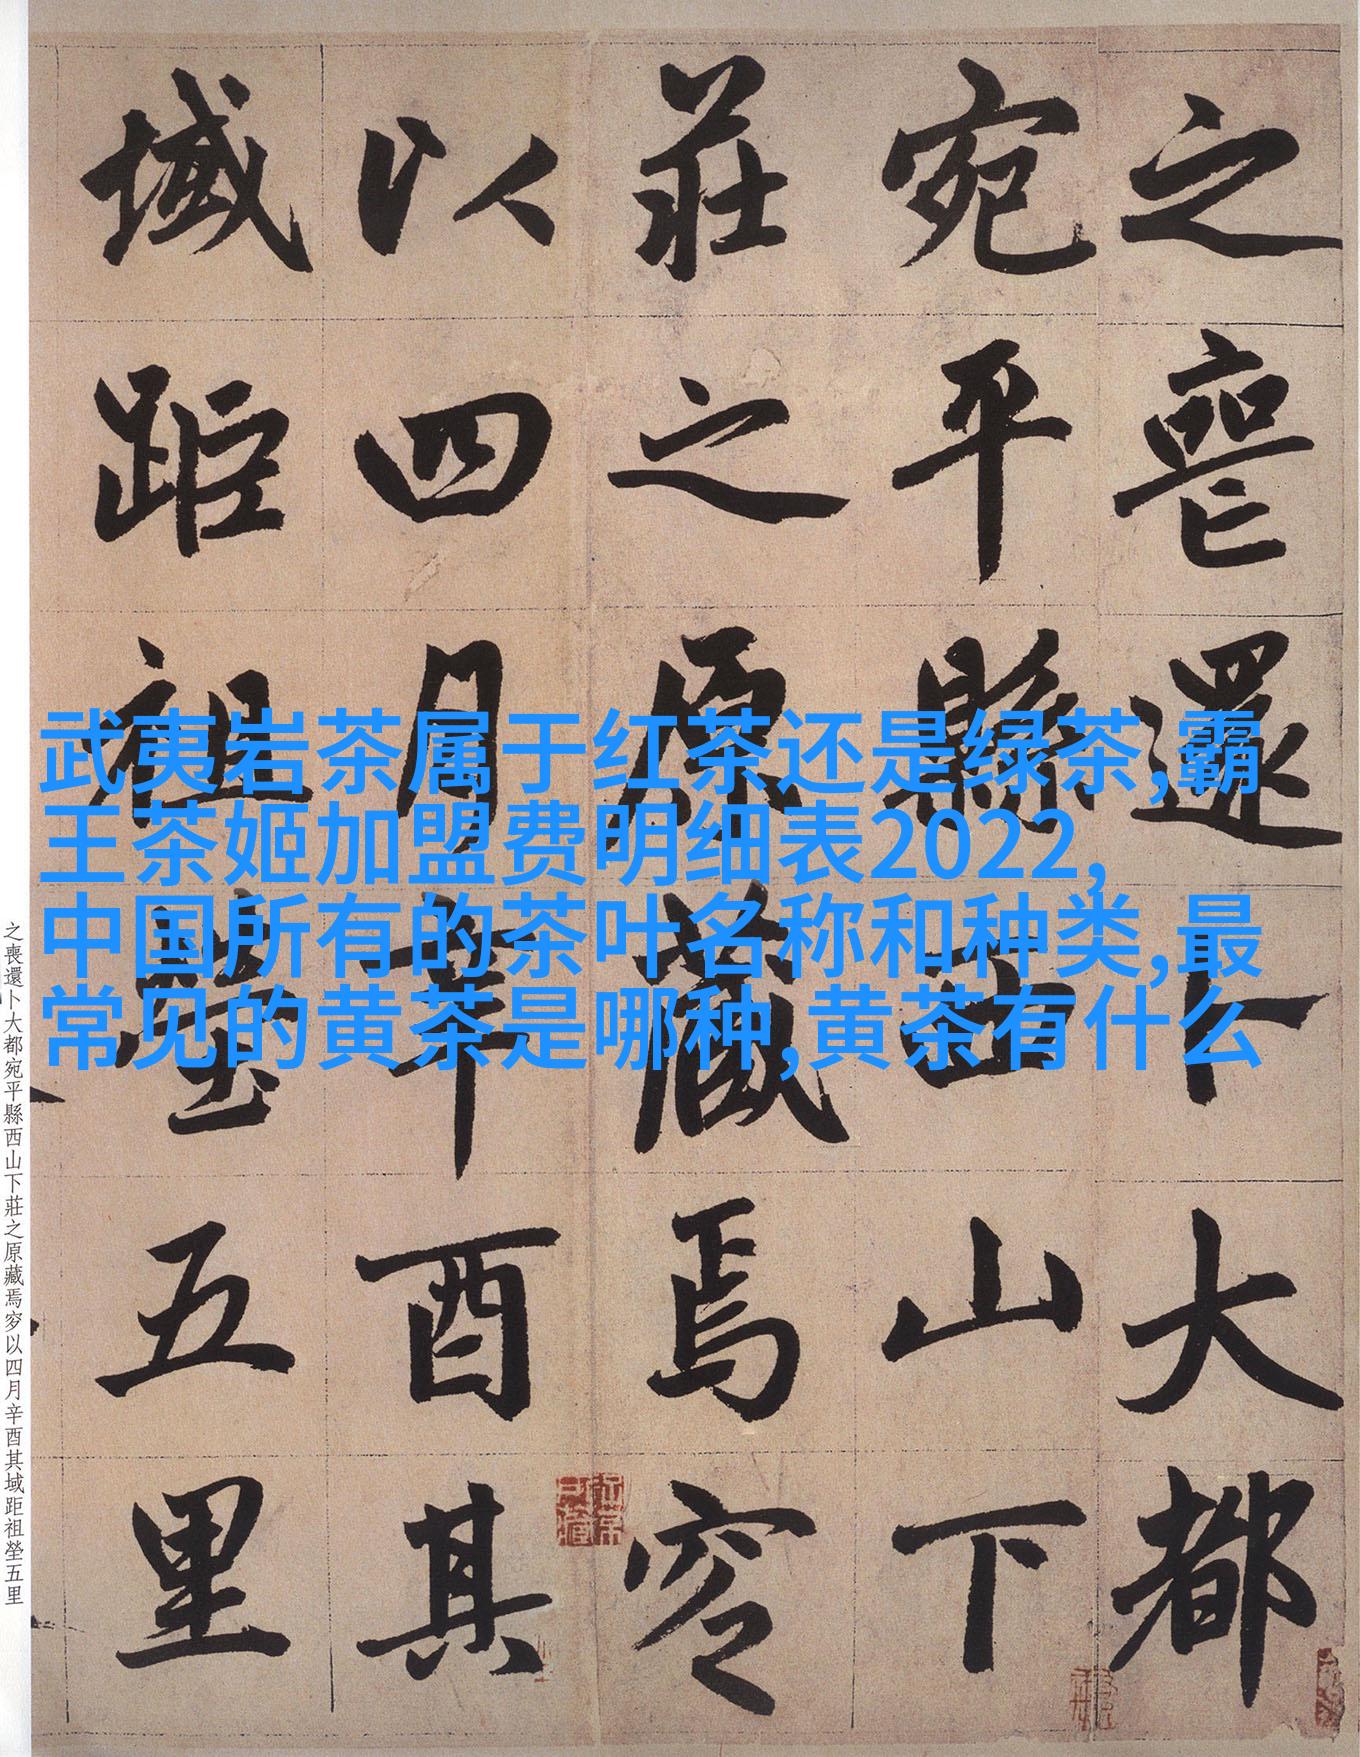 武夷岩茶属于红茶还是绿茶,霸
王茶姬加盟费明细表2022,
中国所有的茶叶名称和种类,最
常见的黄茶是哪种,黄茶有什么
之喪還卜大都
宛平縣西山下
莊之原藏焉穸
以四月辛酉其
域距祖塋五里
之喪還卜大都宛平縣西山下莊之原藏焉穸以四月辛酉其域距祖塋五里